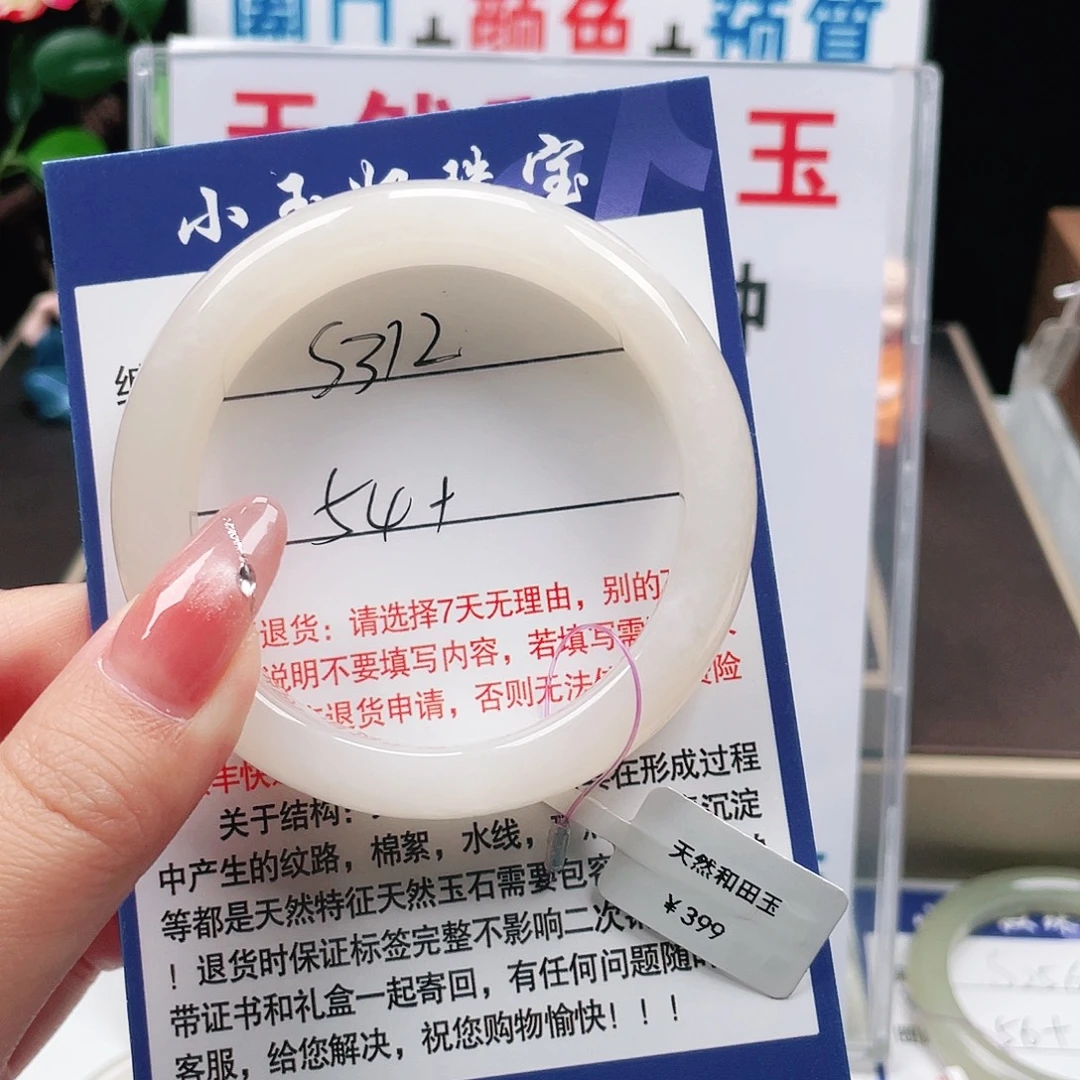 圈口+颜色+预算
天然和 玉
种
小玉 珠宝
编
S312
54+
退货：请选择7天无理由，别的7
说明不要填写内容，若填写需
退货申请，否则无法 险
关于结构： 在形成过程
中产生的纹路，棉絮，水线， 沉淀
等都是天然特征天然玉石需要包容
！退货时保证标签完整不影响二次销
带证书和礼盒一起寄回，有任何问题随时
客服，给您解决，祝您购物愉快！！！
天然和田玉
¥399
56+